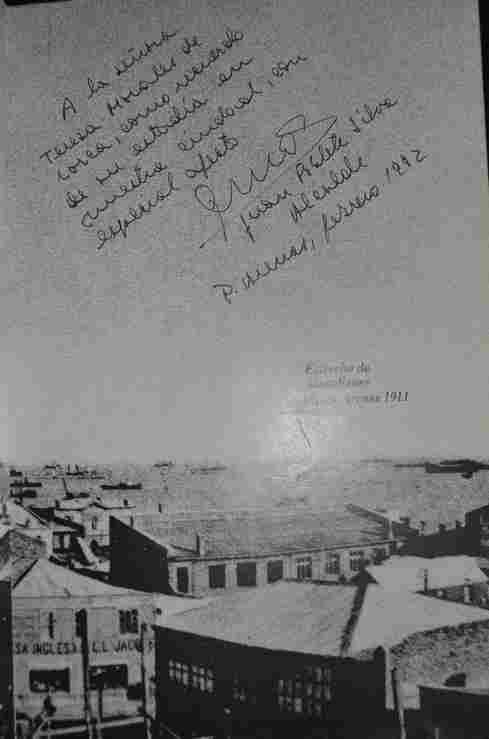 A la señora
Teresa Morales de
como recuerdo
de su estadía en
nuestra ciudad, con
especial afecto
Juan Silva
Alcalde
P. Arenas, febrero 1992
Estrecho de
Magallanes
Arenas 1911
SA INGLESA L.L. JACO